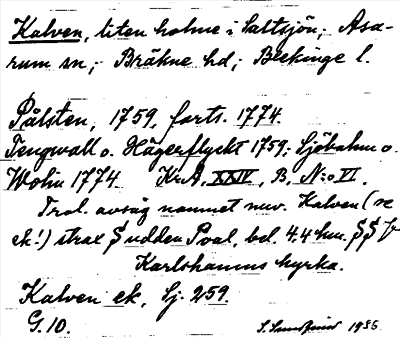 Kalven, liten holme i Saltsjön; Asa-
rum sn; Bräkne hd; Blekinge l.
Pålsten, 1759, forts. 1774.
Tengwall o. Hägerflyckt 1759; Sjöbohm o.
Wohn 1774. KrA, XXIV, B, N:o VI.
Trol. avsåg namnet nuv. Kalven (se
ek!) strax S udden Pval, bel. 4.4 km. SSV
Karlshamns kyrka.
Kalven ek, Sj. 259.
G. 10.
1935.